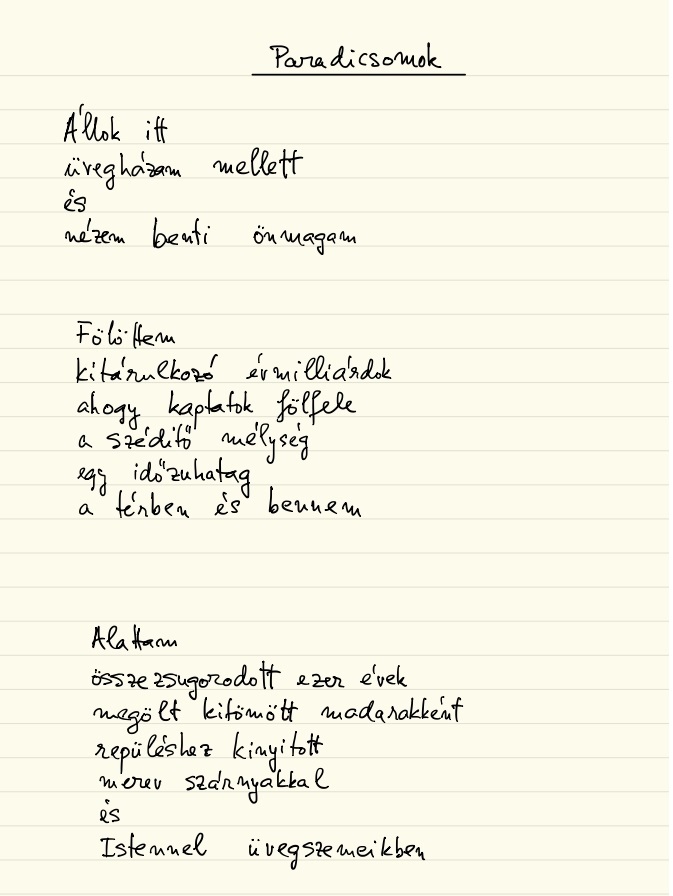 Paradicsomok
Állok itt
üvegházam mellett
és
nézem benti önmagam
Fölöttem
kitárulkozó évmilliárdok
ahogy kaptatok fölfele
a szédítő mélység
egy időzuhatag
a térben és bennem
Alattam
összezsugorodott ezer évek
megölt kitömött madarakként
repüléshez kinyitott
merev szárnyakkal
és
Istennel üvegszemeikben